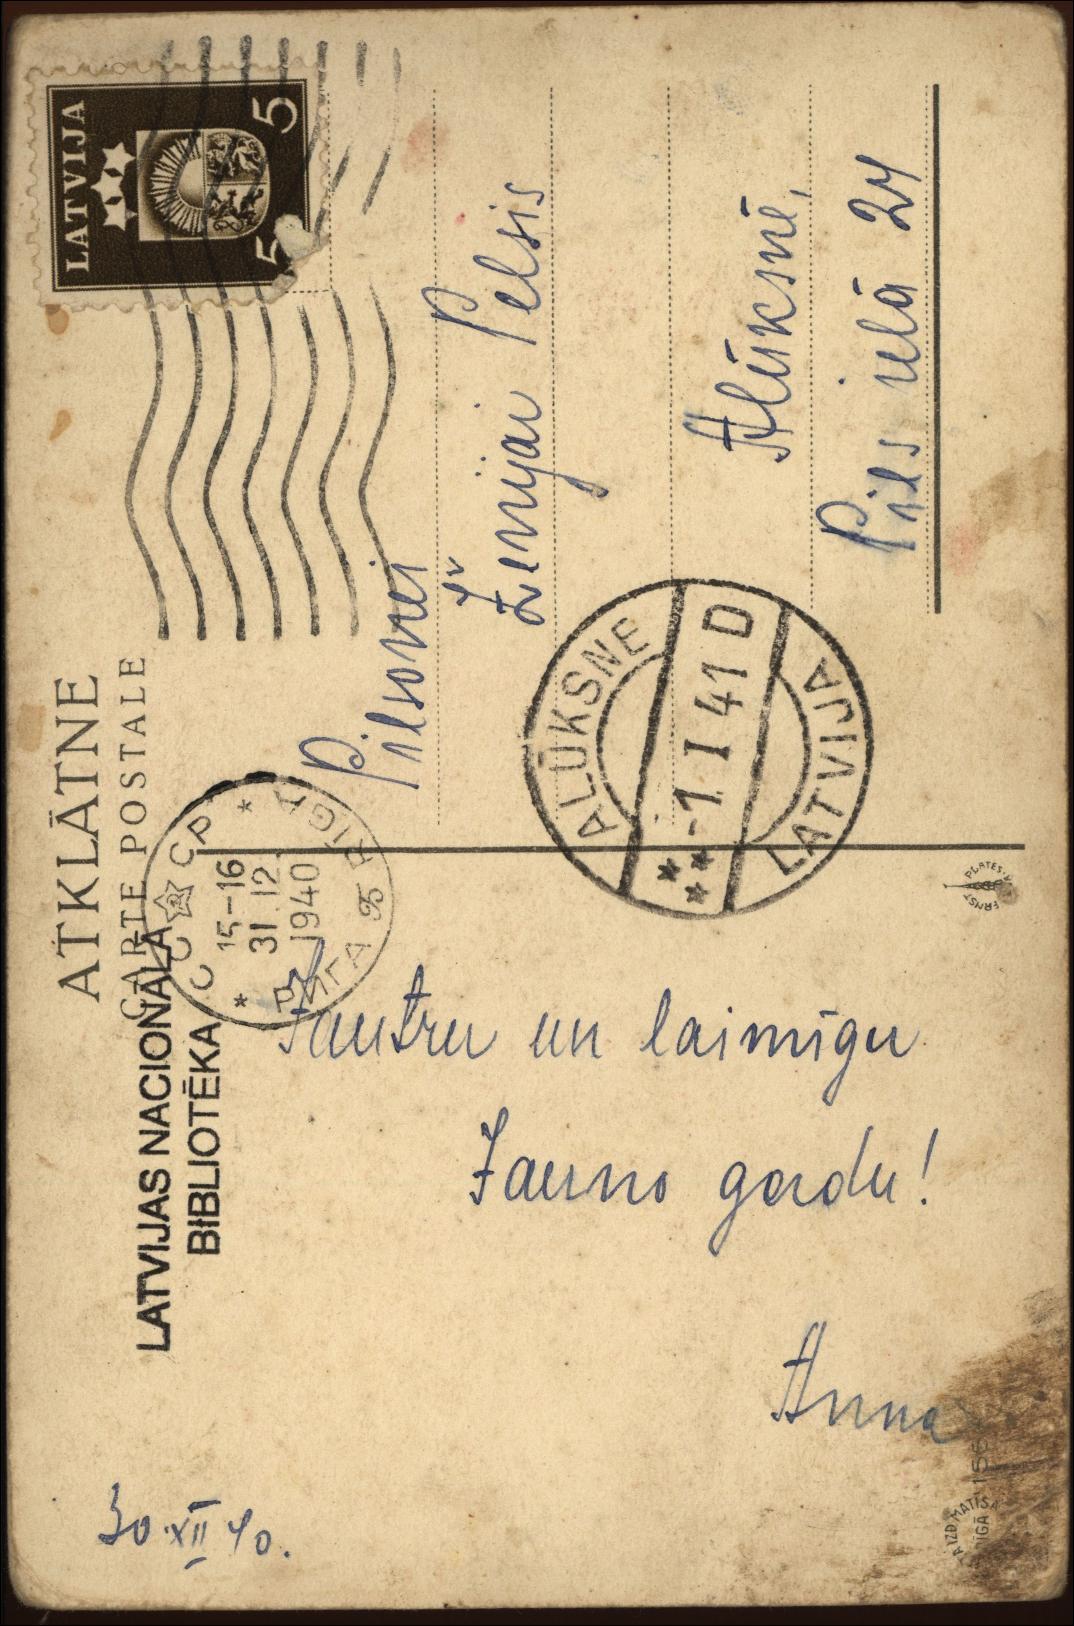 ATKLĀTNE
CARTE POSTALE
LATVIJAS NACIONĀLĀ
BIBLIOTĒKA
LATVIJA
5 5
СССР
15-16
31 12
1940
РИГА Б RIGA
30 XII 40.
Jautru un laimīgu
Jauno gadu!
Anna
Pilsonei
Ženijai Pelsis
Alūksnē,
Pils ielā 24
ALŪKSNE
-1 I 41 D
LATVIJA
ERNST PLATES
IZD. MATĪSA
RĪGĀ